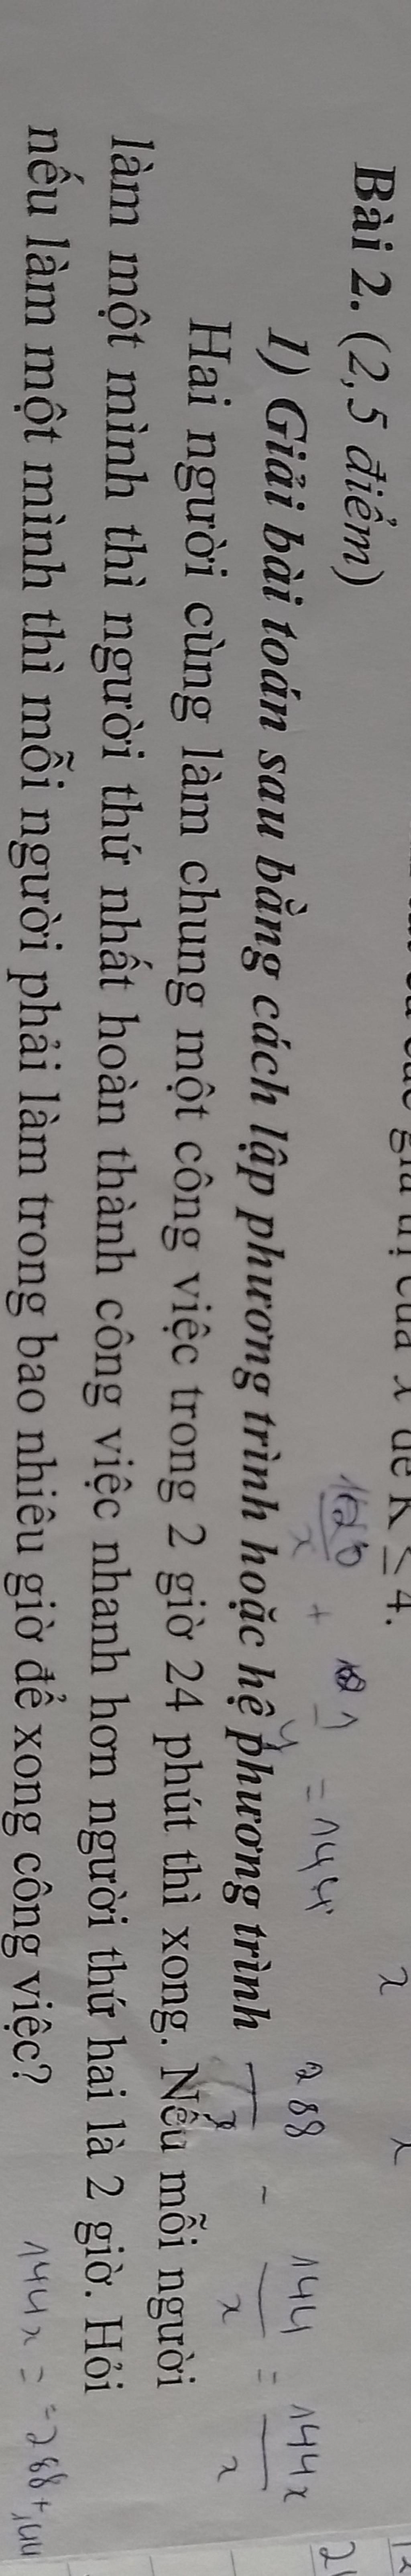 ≤ 4.
Bài 2. (2,5 điểm)
1) Giải bài toán sau bằng cách lập phương trình hoặc hệ phương trình
Hai người cùng làm chung một công việc trong 2 giờ 24 phút thì xong. Nếu mỗi người
làm một mình thì người thứ nhất hoàn thành công việc nhanh hơn người thứ hai là 2 giờ. Hỏi
nếu làm một mình thì mỗi người phải làm trong bao nhiêu giờ để xong công việc?
= 144
288 - 144/x = 144x
144x = 288 + 144